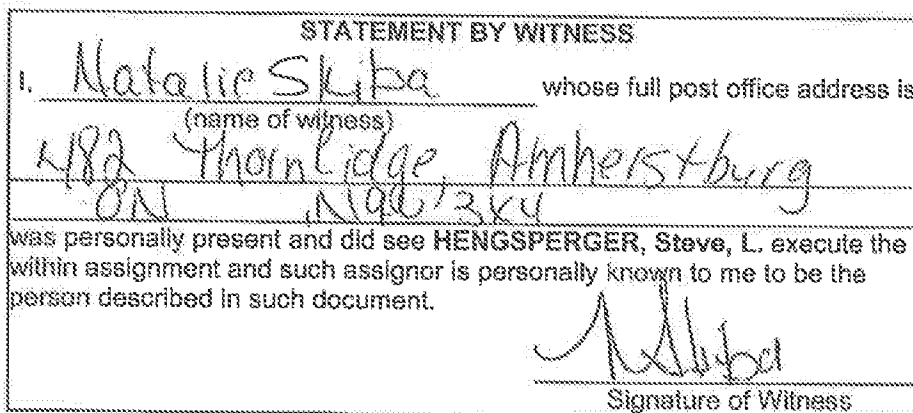 STATEMENT BY WITNESS
I, Natalie Skiba whose full post office address is
(name of witness)
482 Thornlidge, Amherstburg
ON
was personally present and did see HENGSPERGER, Steve, L. execute the
within assignment and such assignor is personally known to me to be the
person described in such document.
NSkiba
Signature of Witness